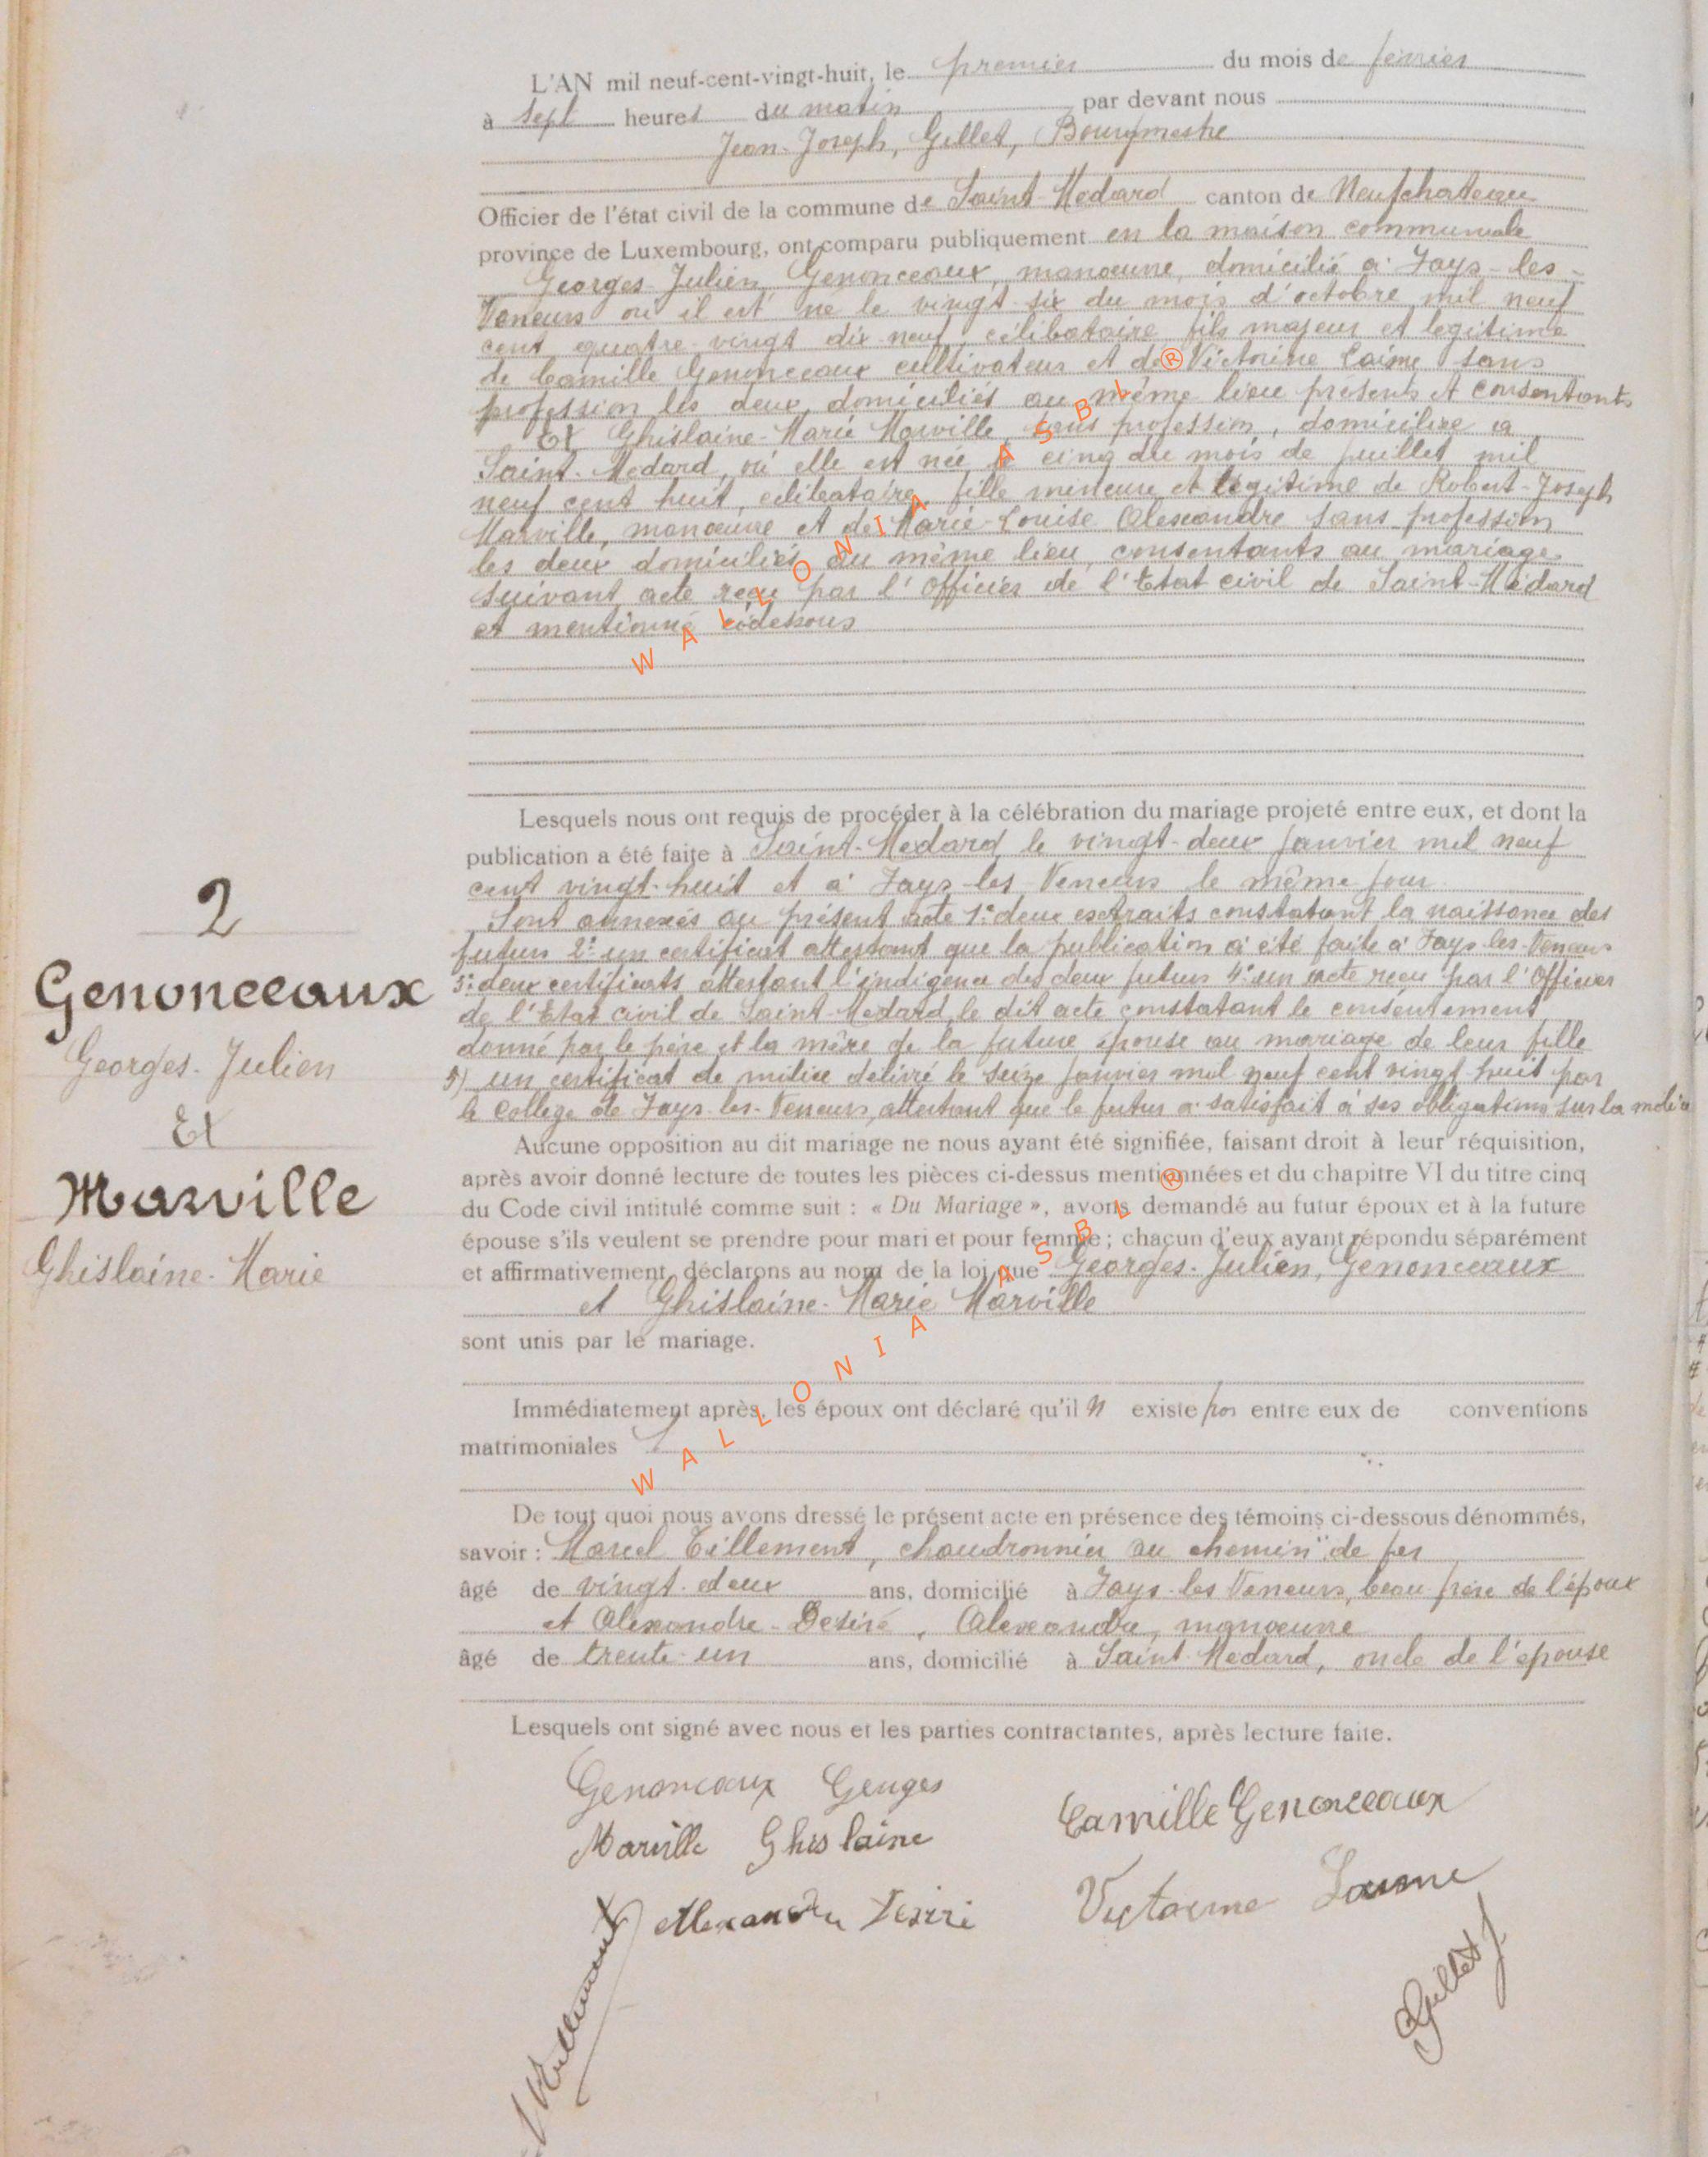 L'AN mil neuf-cent-vingt-huit, le premier du mois de février
à sept heures du matin par devant nous
Jean-Joseph, Gillet, Bourgmestre
Officier de l'état civil de la commune de Saint-Medard canton de Neufchateau
province de Luxembourg, ont comparu publiquement en la maison communale
Georges-Julien Genonceaux, manoeuvre, domicilié à Fays-les-
Veneurs où il est né le vingt-six du mois d'octobre mil neuf
cent quatre-vingt dix-neuf, célibataire fils majeur et legitime
de Camille Genonceaux cultivateur et de Victorine Laime sans
profession les deux domiciliés au même lieu présents et consentants
Et Ghislaine-Marie Marville, sans profession, domiciliée à
Saint-Medard, où elle est née le cinq du mois de juillet mil
neuf cent huit, célibataire, fille mineure et légitime de Robert-Joseph
Marville, manœuvre et de Marie-Louise Alexandre sans profession
les deux domiciliés au même lieu, consentants au mariage
suivant acte reçu par l'Officier de l'Etat civil de Saint-Médard
et mentionné cidessous
Lesquels nous ont requis de procéder à la célébration du mariage projeté entre eux, et dont la
publication a été faite à Saint-Medard le vingt-deux janvier mil neuf
cent vingt-huit et à Fays-les-Veneurs le même jour
Sont annexés au présent acte 1° deux extraits constatant la naissance des
futurs 2° un certificat attestant que la publication a été faite à Fays-les-Veneurs
3° deux certificats attestant l'indigence des deux futurs 4° un acte reçu par l'Officier
de l'Etat civil de Saint-Medard, le dit acte constatant le consentement
donné par le père et la mère de la future épouse au mariage de leur fille
5) un certificat de milice délivré le seize janvier mil neuf cent vingt huit par
le collège de Fays-les-Veneurs, attestant que le futur a satisfait à ses obligations sur la milice
2
Genonceaux
Georges-Julien
Et
Marville
Ghislaine-Marie
Aucune opposition au dit mariage ne nous ayant été signifiée, faisant droit à leur réquisition,
après avoir donné lecture de toutes les pièces ci-dessus mentionnées et du chapitre VI du titre cinq
du Code civil intitulé comme suit : « Du Mariage », avons demandé au futur époux et à la future
épouse s'ils veulent se prendre pour mari et pour femme ; chacun d'eux ayant répondu séparément
et affirmativement, déclarons au nom de la loi que Georges-Julien, Genonceaux
et Ghislaine-Marie Marville
sont unis par le mariage.
Immédiatement après, les époux ont déclaré qu'il n existe pas entre eux de conventions
matrimoniales
De tout quoi nous avons dressé le présent acte en présence des témoins ci-dessous dénommés,
savoir : Marcel Tillement, chaudronnier au chemin de fer
âgé de vingt-deux ans, domicilié à Fays-les-Veneurs, beau-frère de l'époux
et Alexandre-Desiré, Alexandre, manoeuvre
âgé de trente-un ans, domicilié à Saint-Medard, oncle de l'épouse
Lesquels ont signé avec nous et les parties contractantes, après lecture faite.
Genonceaux Georges
Camille Genonceaux
Marville Ghislaine
Victorine Laime
Alexandre Desiré
Tillement
Gillet J
WALLONIA ASBL ®
WALLONIA ASBL ®